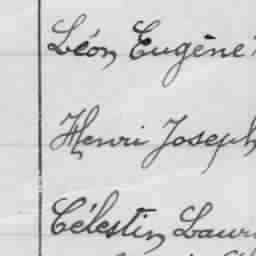 Léon Eugène
Henri Joseph
Célestin